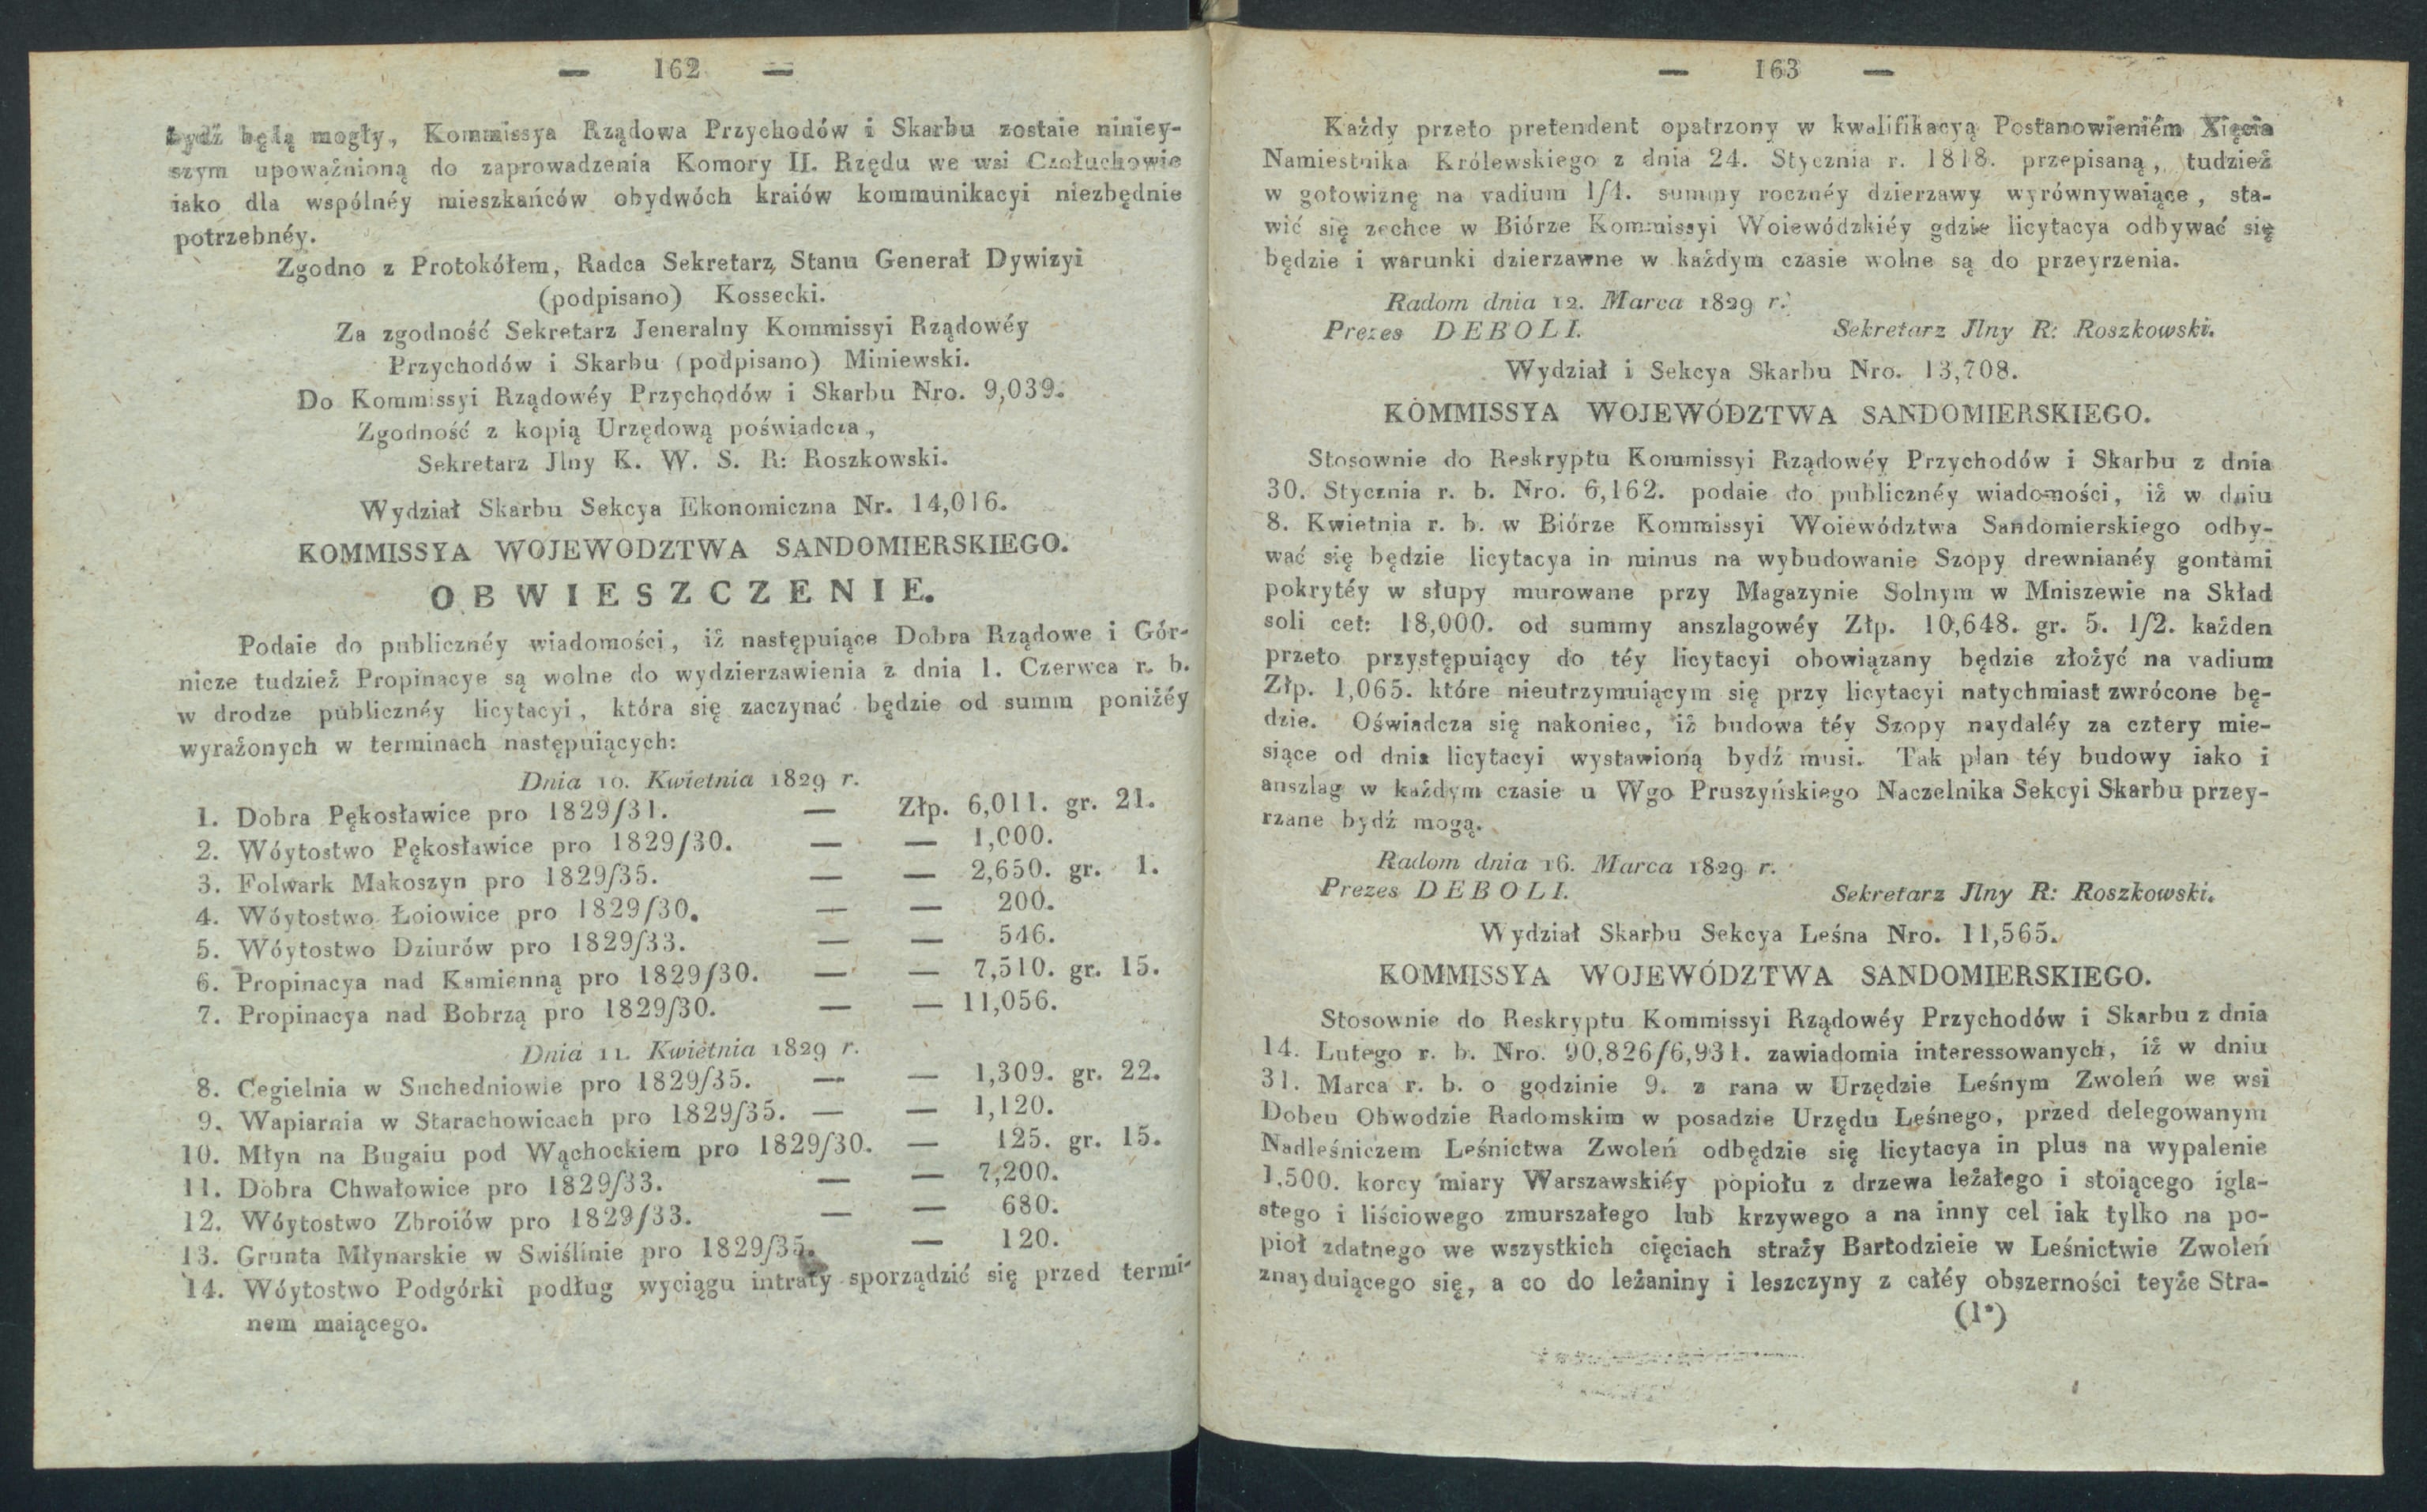 — 162 —
bydź będą mogły, Kommissya Rządowa Przychodów i Skarbu zostaie niniey-
szym upoważnioną do zaprowadzenia Komory II. Rzędu we wsi Czołuchowie
iako dla wspólnéy mieszkańców obydwóch kraiów kommunikacyi niezbędnie
potrzebnéy.
Zgodno z Protokółem, Radca Sekretarz Stanu Generał Dywizyi
(podpisano) Kossecki.
Za zgodność Sekretarz Jeneralny Kommissyi Rządowéy
Przychodów i Skarbu (podpisano) Miniewski.
Do Kommissyi Rządowéy Przychodów i Skarbu Nro. 9,039.
Zgodność z kopią Urzędową poświadcza,
Sekretarz Jlny K. W. S. R: Roszkowski.
Wydział Skarbu Sekcya Ekonomiczna Nr. 14,016.
KOMMISSYA WOJEWODZTWA SANDOMIERSKIEGO.
OBWIESZCZENIE.
Podaie do publicznéy wiadomości, iż następuiące Dobra Rządowe i Gór-
nicze tudzież Propinacye są wolne do wydzierzawienia z dnia 1. Czerwca r. b.
w drodze publicznéy licytacyi, która się zaczynać będzie od summ poniżéy
wyrażonych w terminach następuiących:
Dnia 10. Kwietnia 1829 r.
1. Dobra Pękosławice pro 1829/31. — Złp. 6,011. gr. 21.
2. Wóytostwo Pękosławice pro 1829/30. — — 1,000.
3. Folwark Makoszyn pro 1829/35. — — 2,650. gr. 1.
4. Wóytostwo Łoiowice pro 1829/30. — — 200.
5. Wóytostwo Dziurów pro 1829/33. — — 546.
6. Propinacya nad Kamienną pro 1829/30. — — 7,510. gr. 15.
7. Propinacya nad Bobrzą pro 1829/30. — — 11,056.
Dnia 11. Kwietnia 1829 r.
8. Cegielnia w Suchedniowie pro 1829/35. — — 1,309. gr. 22.
9. Wapiarnia w Starachowicach pro 1829/35. — — 1,120.
10. Młyn na Bugaiu pod Wąchockiem pro 1829/30. — 125. gr. 15.
11. Dobra Chwałowice pro 1829/33. — — 7,200.
12. Wóytostwo Zbroiów pro 1829/33. — — 680.
13. Grunta Młynarskie w Swiślinie pro 1829/35. — 120.
14. Wóytostwo Podgórki podług wyciągu intraty sporządzić się przed termi-
nem maiącego.
— 163 —
Każdy przeto pretendent opatrzony w kwalifikacyą Postanowieniém Xięcia
Namiestnika Królewskiego z dnia 24. Stycznia r. 1818. przepisaną, tudzież
w gotowiznę na vadium 1/4. summy rocznéy dzierzawy wyrównywaiące, sta-
wić się zechce w Biórze Kommissyi Woiewódzkiéy gdzie licytacya odbywać się
będzie i warunki dzierzawne w każdym czasie wolne są do przeyrzenia.
Radom dnia 12. Marca 1829 r.
Prezes DEBOLI. Sekretarz Jlny R: Roszkowski.
Wydział i Sekcya Skarbu Nro. 13,708.
KOMMISSYA WOJEWÓDZTWA SANDOMIERSKIEGO.
Stosownie do Reskryptu Kommissyi Rządowéy Przychodów i Skarbu z dnia
30. Stycznia r. b. Nro. 6,162. podaie do publicznéy wiadomości, iż w dniu
8. Kwietnia r. b. w Biórze Kommissyi Woiewództwa Sandomierskiego odby-
wać się będzie licytacya in minus na wybudowanie Szopy drewnianéy gontami
pokrytéy w słupy murowane przy Magazynie Solnym w Mniszewie na Skład
soli cet: 18,000. od summy anszlagowéy Złp. 10,648. gr. 5. 1/2. każden
przeto przystępuiący do téy licytacyi obowiązany będzie złożyć na vadium
Złp. 1,065. które nieutrzymuiącym się przy licytacyi natychmiast zwrócone bę-
dzie. Oświadcza się nakoniec, iż budowa téy Szopy naydaléy za cztery mie-
siące od dnia licytacyi wystawioną bydź musi. Tak plan téy budowy iako i
anszlag w każdym czasie u Wgo Pruszyńskiego Naczelnika Sekcyi Skarbu przey-
rzane bydź mogą.
Radom dnia 16. Marca 1829 r.
Prezes DEBOLI. Sekretarz Jlny R: Roszkowski.
Wydział Skarbu Sekcya Leśna Nro. 11,565.
KOMMISSYA WOJEWÓDZTWA SANDOMIERSKIEGO.
Stosownie do Reskryptu Kommissyi Rządowéy Przychodów i Skarbu z dnia
14. Lutego r. b. Nro. 90,826/6,931. zawiadomia interessowanych, iż w dniu
31. Marca r. b. o godzinie 9. z rana w Urzędzie Leśnym Zwoleń we wsi
Dobcu Obwodzie Radomskim w posadzie Urzędu Leśnego, przed delegowanym
Nadleśniczem Leśnictwa Zwoleń odbędzie się licytacya in plus na wypalenie
1,500. korcy miary Warszawskiéy popiołu z drzewa leżałego i stoiącego igla-
stego i liściowego zmurszałego lub krzywego a na inny cel iak tylko na po-
pioł zdatnego we wszystkich cięciach straży Bartodzieie w Leśnictwie Zwoleń
znayduiącego się, a co do leżaniny i leszczyny z całéy obszerności teyże Stra-
(1*)